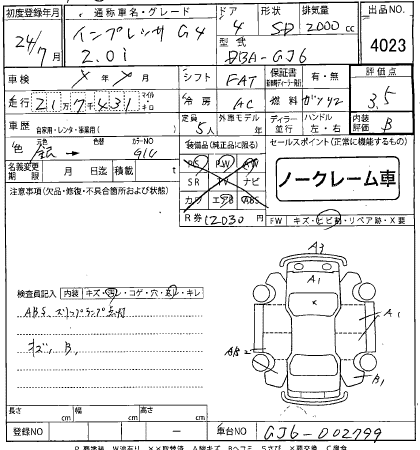 初度登録年月 通称車名・グレード ドア 形状 排気量 出品NO
24/7 インプレッサ G4 4 SD 2000 cc 4023
2.0i 型式 DBA-GJ6
車検 × 年 × 月 シフト FAT 保証書 有・無 評価点
走行 21万7千431 マイル キロ 冷房 AC 燃料 ガソリン 3.5
車歴 自家用・レンタ・事業用( ) 定員 5人 外車モデル 年 ディーラー 並行 ハンドル 左・右 内装評価 B
色 元色 銀 色替 カラーNO G1U 装備品(純正品に限る) セールスポイント(正常に機能するもの)
名義変更期限 月 日迄 積載 t PS PW
SR TV ナビ ノークレーム車
注意事項(欠品・修復・不具合箇所および状態) カワ エアB ABS
R券 12030 円 FW キズ・ヒビ割・リペア跡・X要
A3
A1
検査員記入 内装 キズ・汚レ・コゲ・穴・スレ・キレ
ABS、スリップランプ点灯
キズ、B、
×
A1
AB2
B1
長さ cm 幅 cm 高さ cm
登録NO ー 車台NO GJ6-002799